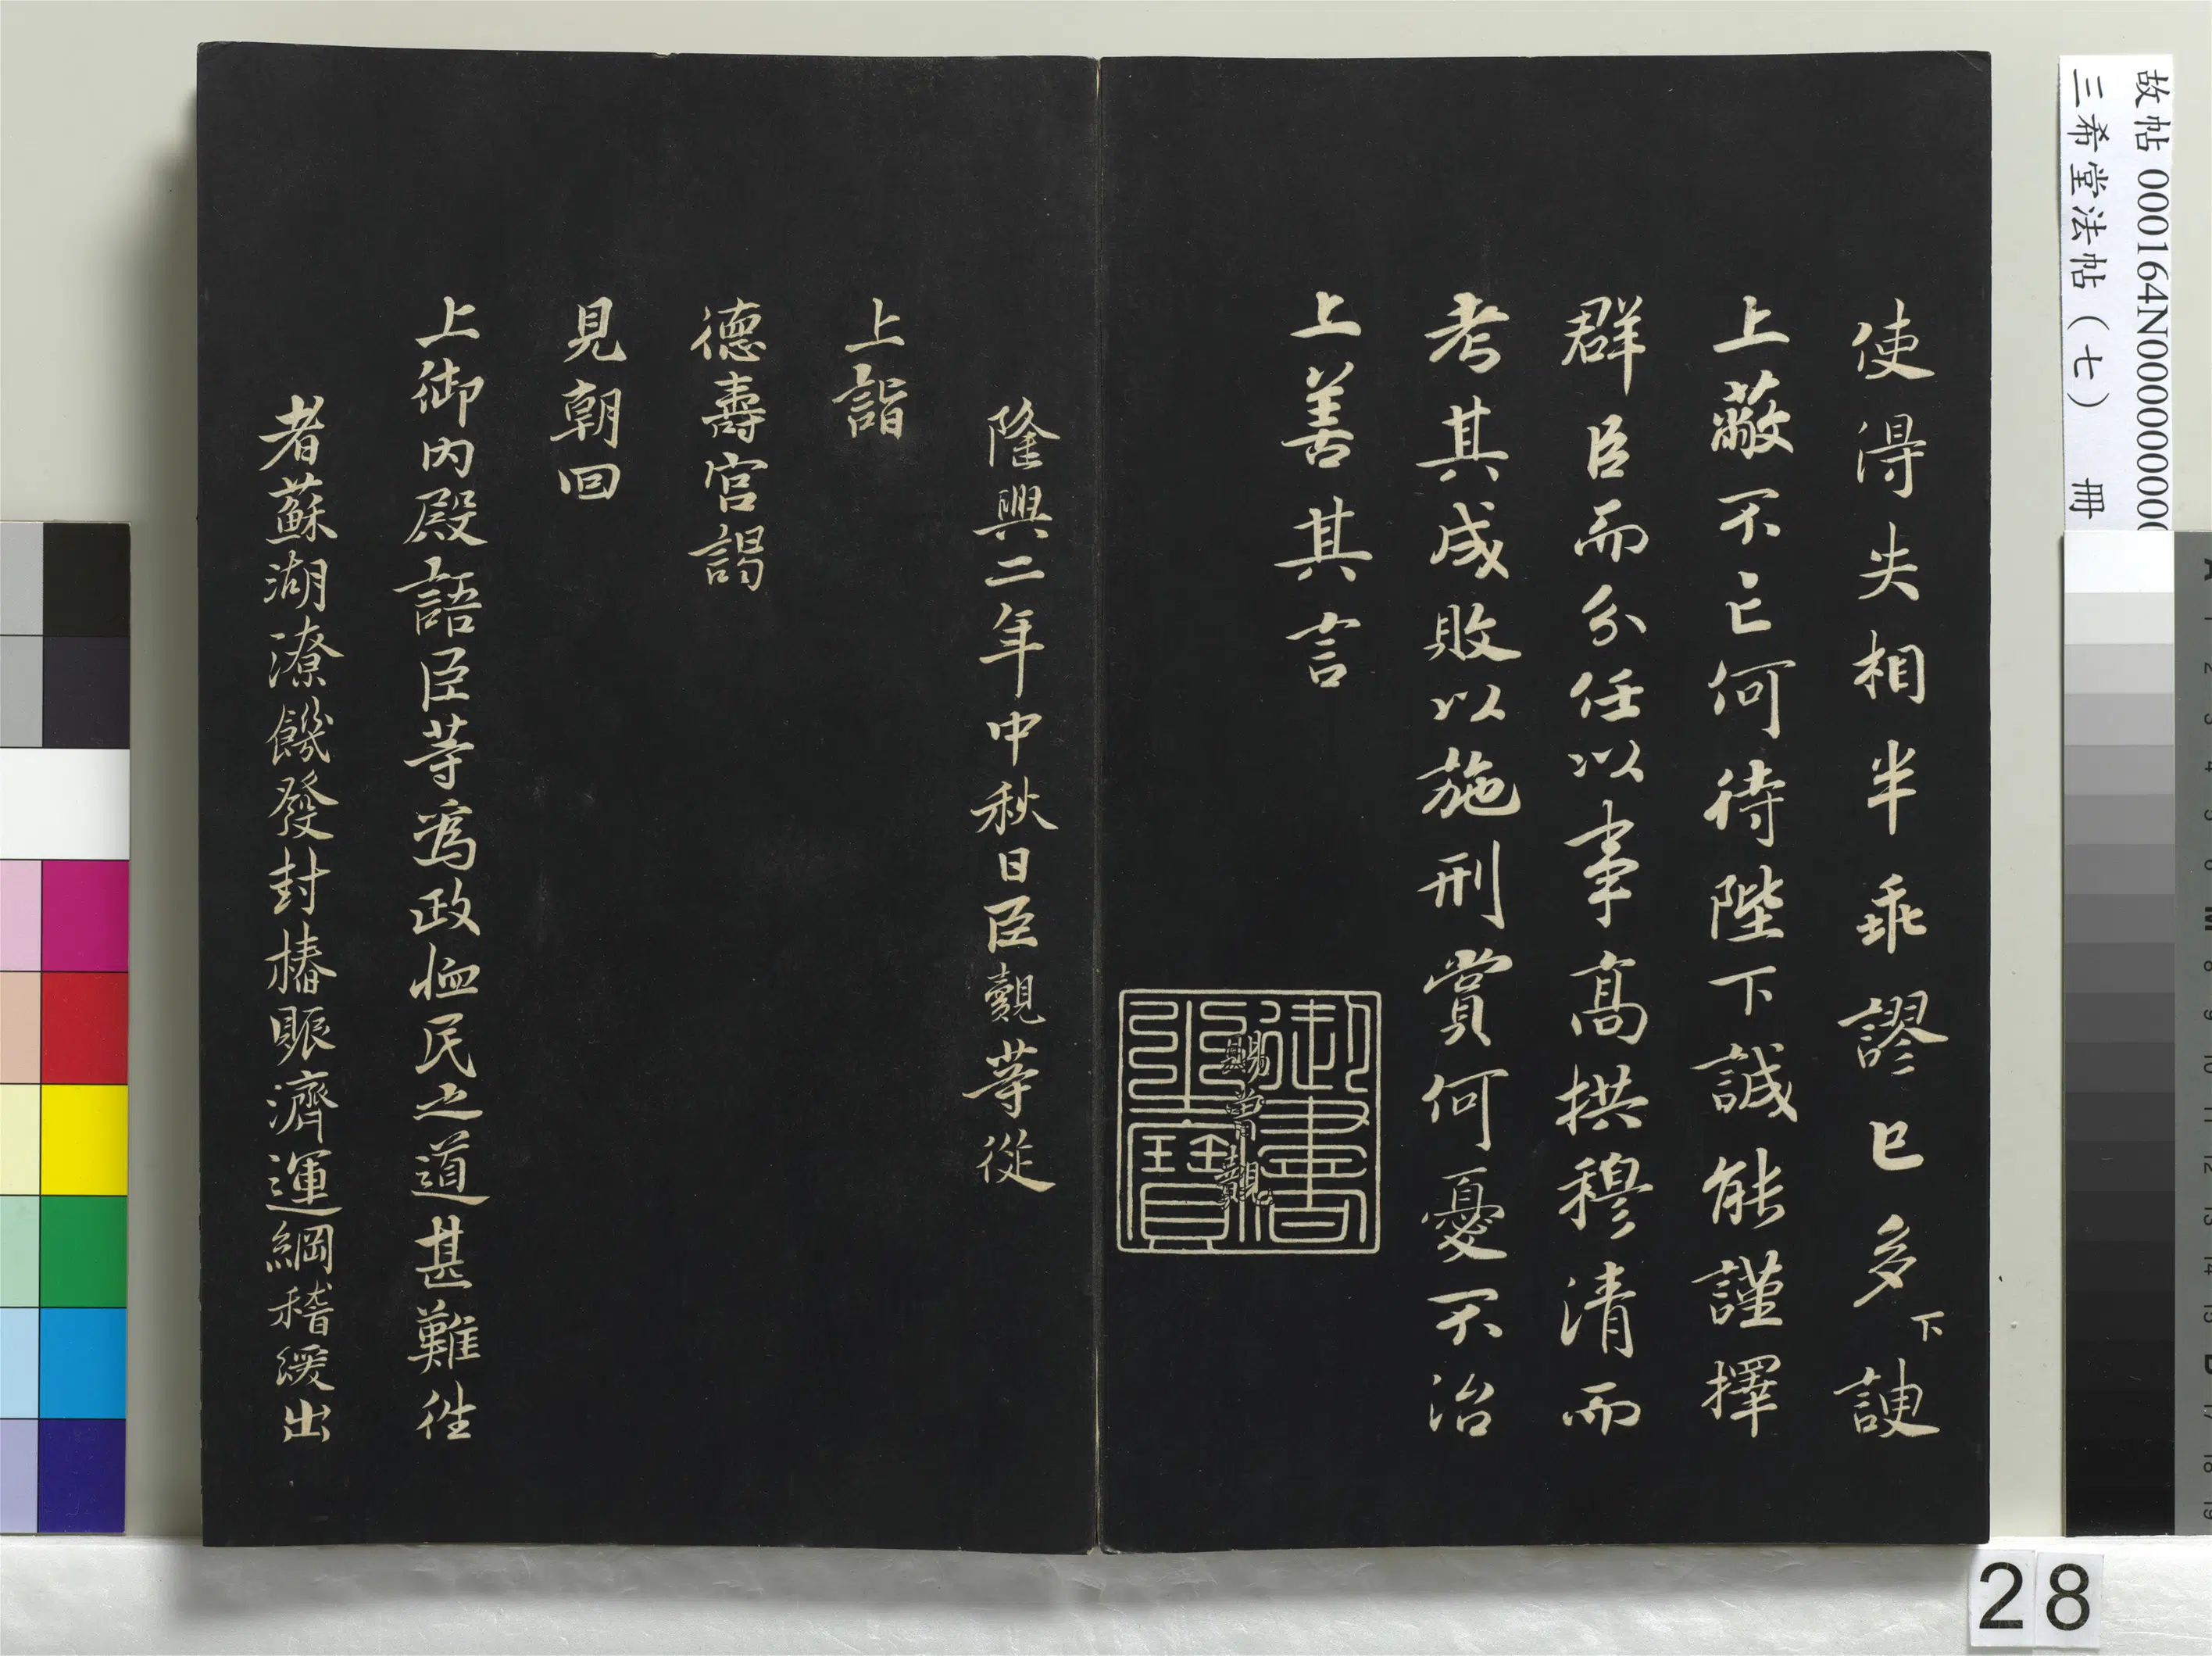 使得失相半乖謬已多下諛
上蔽不亡何待陛下誠能謹擇
群臣而分任以事高拱穆清而
考其成敗以施刑賞何憂不治
上善其言
御書之寶
賜曾覿
隆興二年中秋日臣覿等從
上詣
德壽宮謁
見朝回
上御內殿語臣等為政恤民之道甚難往
者蘇湖潦饑發封樁賑濟運綱稽緩出
故帖 000164N000000000
三希堂法帖（七） 冊
28